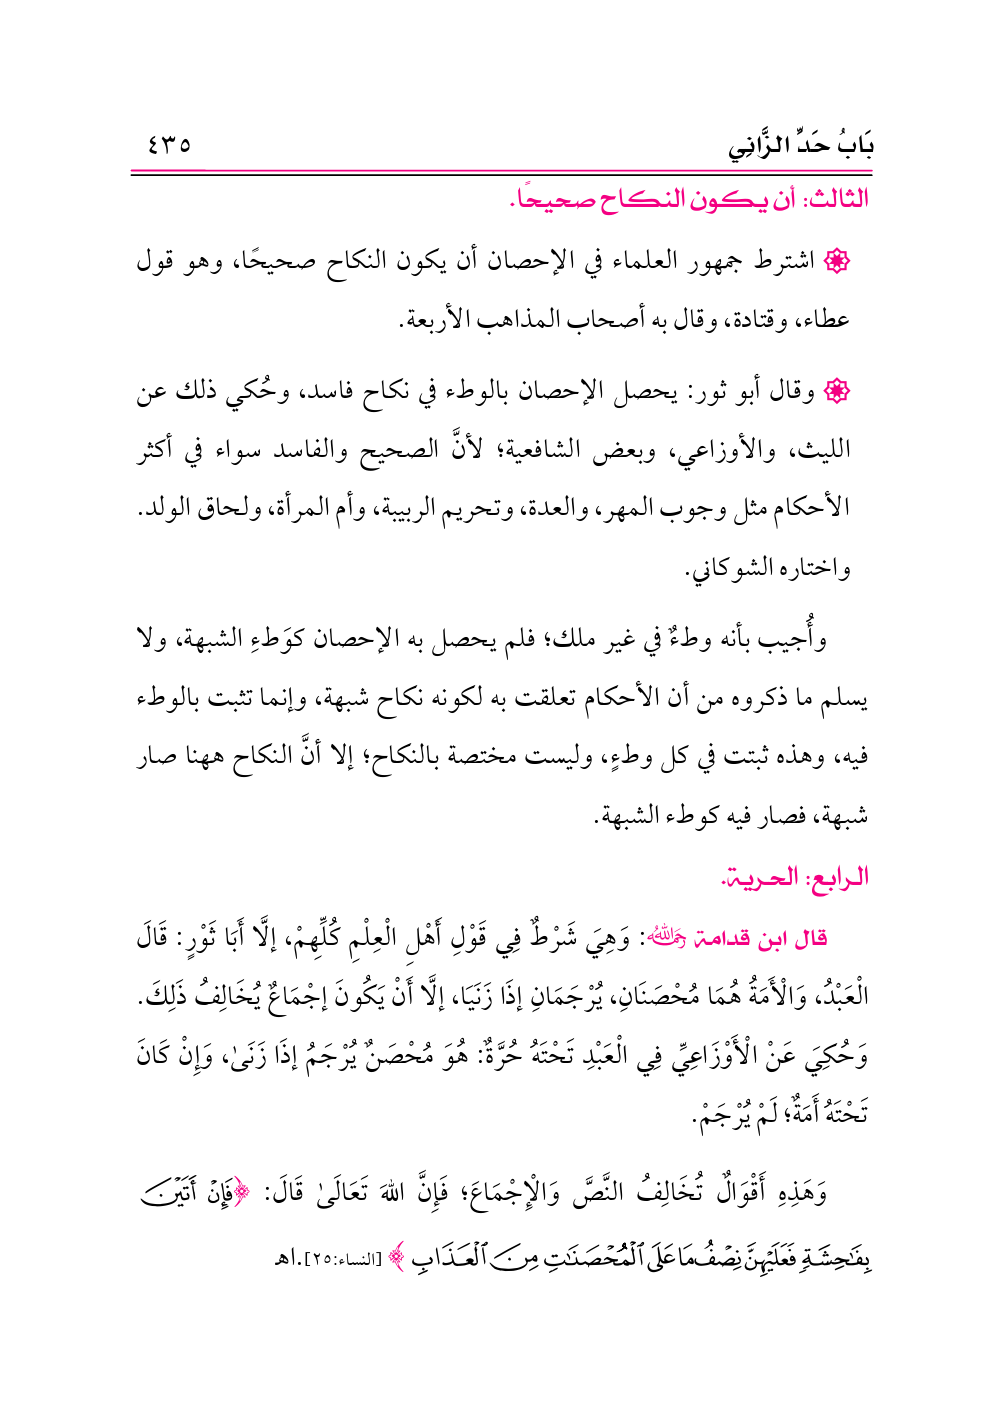 بَابُ حَدِّ الزَّانِي ٤٣٥
الثالث: أن يكون النكاح صحيحًا.
اشترط جمهور العلماء في الإحصان أن يكون النكاح صحيحًا، وهو قول
عطاء، وقتادة، وقال به أصحاب المذاهب الأربعة.
وقال أبو ثور: يحصل الإحصان بالوطء في نكاح فاسد، وحُكي ذلك عن
الليث، والأوزاعي، وبعض الشافعية؛ لأنَّ الصحيح والفاسد سواء في أكثر
الأحكام مثل وجوب المهر، والعدة، وتحريم الربيبة، وأم المرأة، ولحاق الولد.
واختاره الشوكاني.
وأُجيب بأنه وطءٌ في غير ملك؛ فلم يحصل به الإحصان كوَطءِ الشبهة، ولا
يسلم ما ذكروه من أن الأحكام تعلقت به لكونه نكاح شبهة، وإنما تثبت بالوطء
فيه، وهذه ثبتت في كل وطءٍ، وليست مختصة بالنكاح؛ إلا أنَّ النكاح ههنا صار
شبهة، فصار فيه كوطء الشبهة.
الرابع: الحرية.
قال ابن قدامة رحمه الله: وَهِيَ شَرْطٌ فِي قَوْلِ أَهْلِ الْعِلْمِ كُلِّهِمْ، إلَّا أَبَا ثَوْرٍ: قَالَ
الْعَبْدُ، وَالْأَمَةُ هُمَا مُحْصَنَانِ، يُرْجَمَانِ إذَا زَنَيَا، إلَّا أَنْ يَكُونَ إجْمَاعٌ يُخَالِفُ ذَلِكَ.
وَحُكِيَ عَنْ الْأَوْزَاعِيِّ فِي الْعَبْدِ تَحْتَهُ حُرَّةٌ: هُوَ مُحْصَنٌ يُرْجَمُ إذَا زَنَىٰ، وَإِنْ كَانَ
تَحْتَهُ أَمَةٌ؛ لَمْ يُرْجَمْ.
وَهَذِهِ أَقْوَالٌ تُخَالِفُ النَّصَّ وَالْإِجْمَاعَ؛ فَإِنَّ اللهَ تَعَالَىٰ قَالَ: ﴿فَإِنْ أَتَيْنَ
بِفَٰحِشَةٍ فَعَلَيْهِنَّ نِصْفُ مَا عَلَى ٱلْمُحْصَنَٰتِ مِنَ ٱلْعَذَابِ﴾ [النساء:٢٥].اهـ